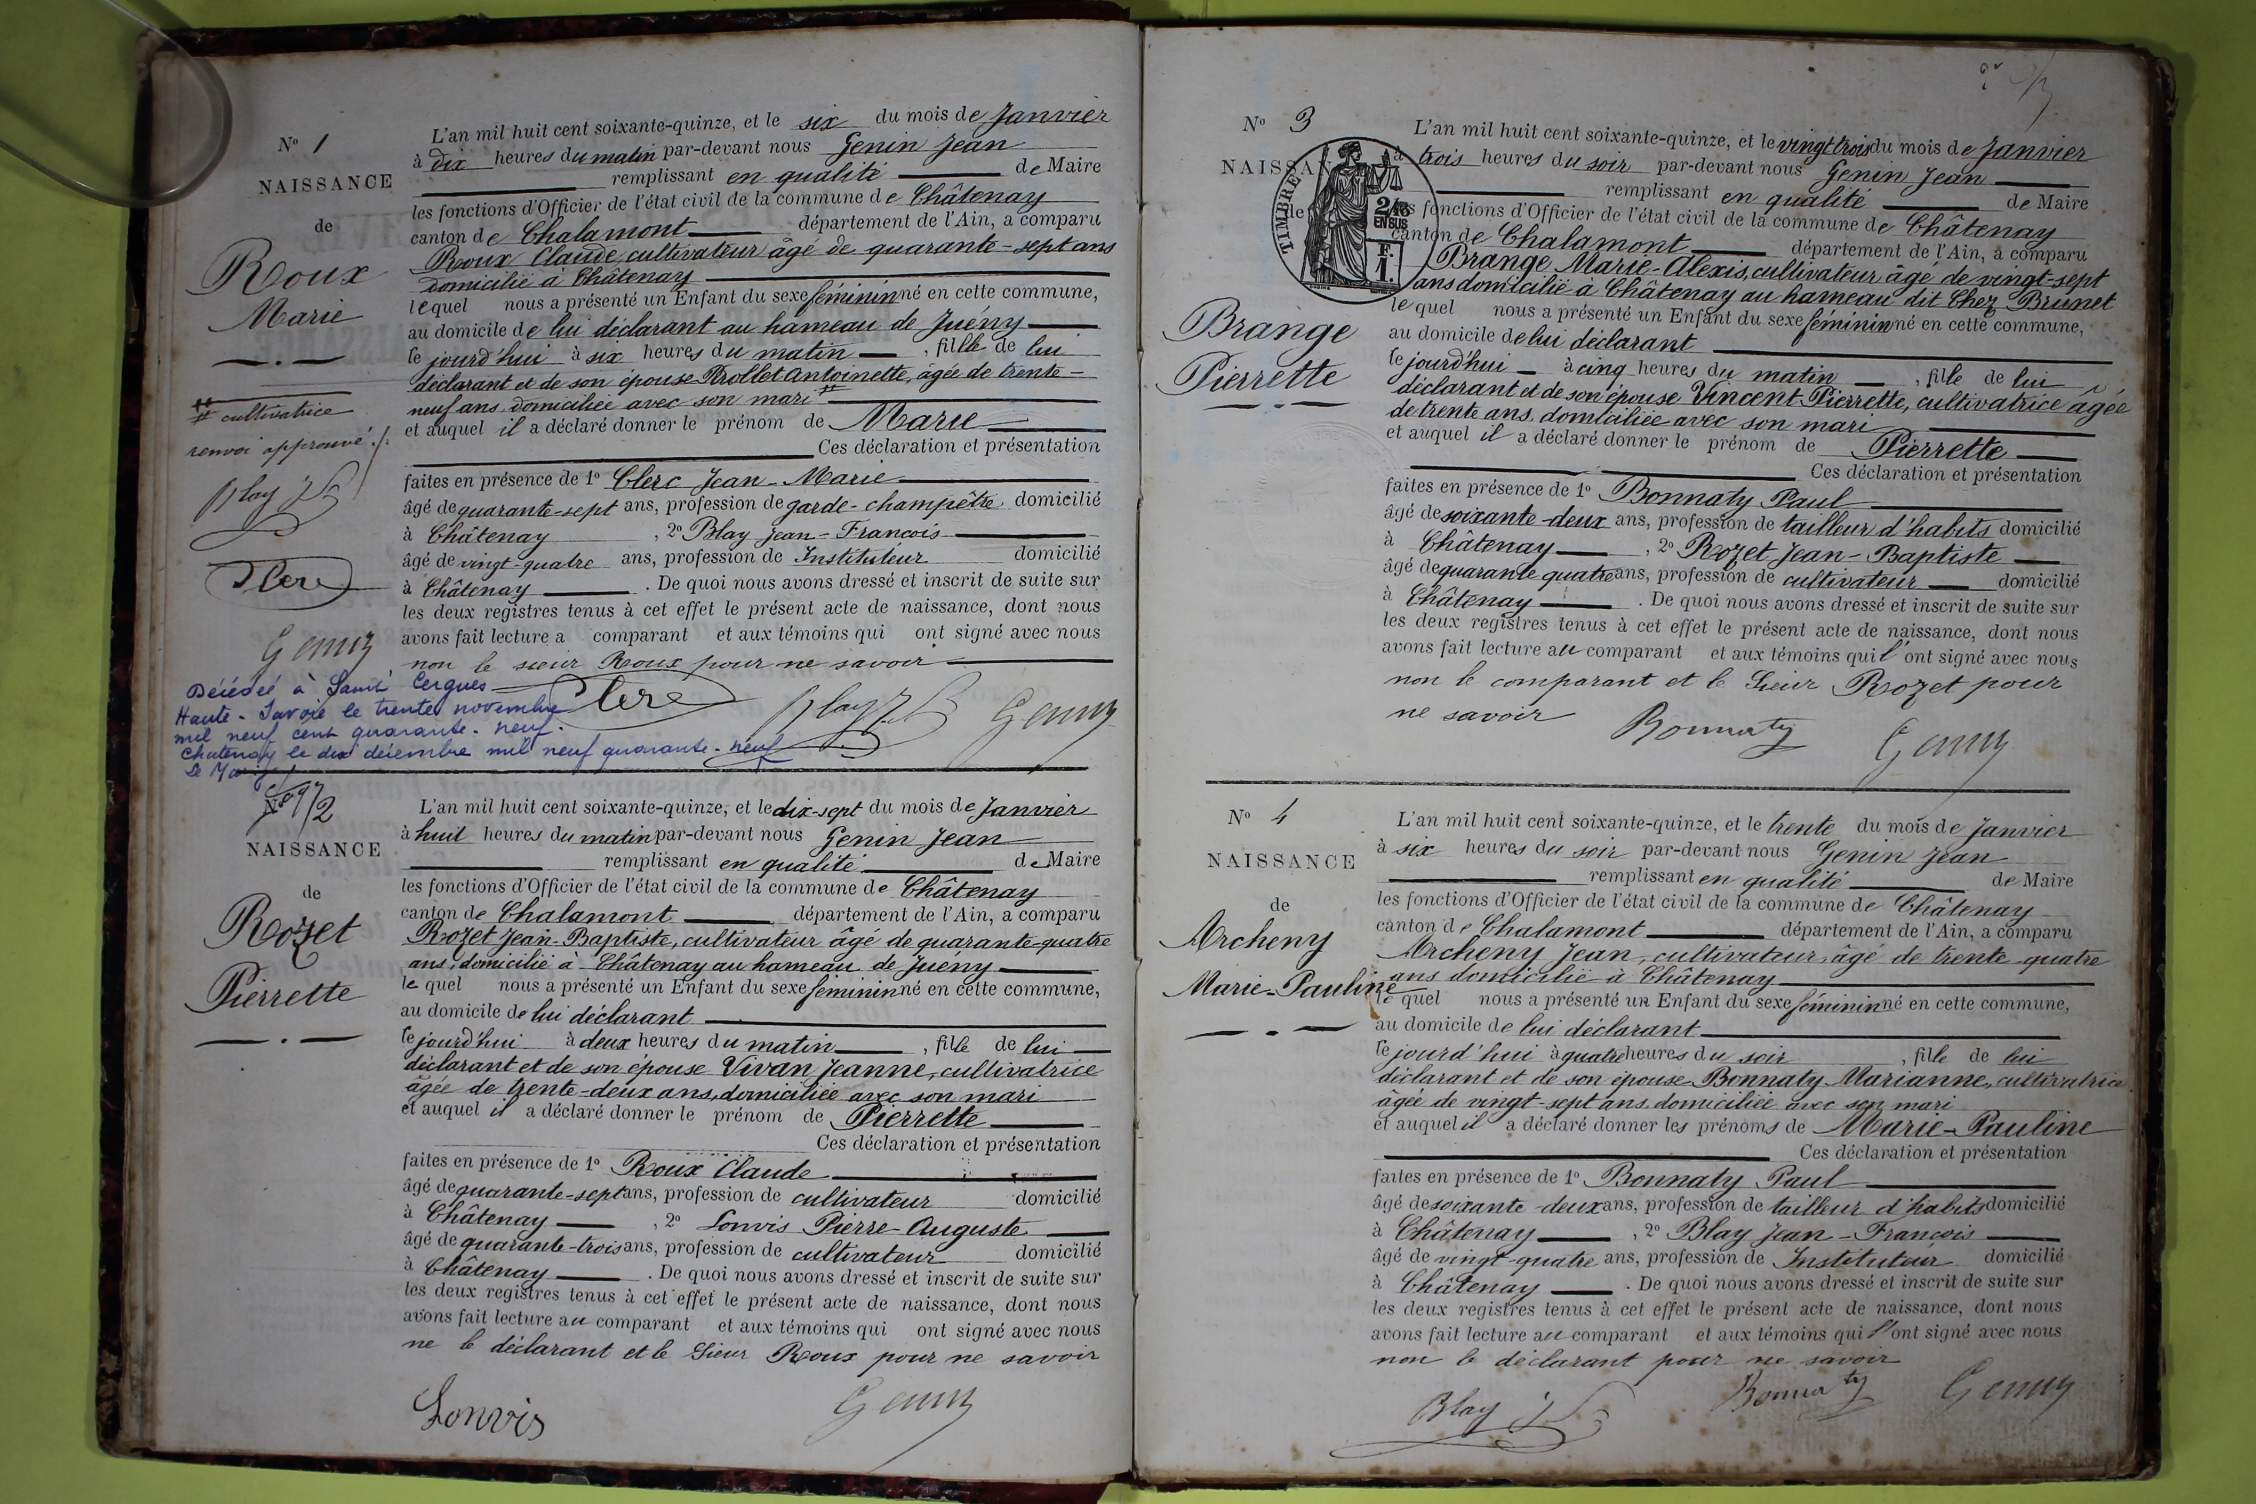 N° 1
NAISSANCE
de
Roux
Marie
# cultivatrice
renvoi approuvé ./.
Blay
Clerc
Genin
L'an mil huit cent soixante-quinze, et le six du mois de Janvier
à dix heures du matin par-devant nous Genin Jean
remplissant en qualité de Maire
les fonctions d'Officier de l'état civil de la commune de Châtenay
canton de Chalamont département de l'Ain, a comparu
Roux Claude, cultivateur âgé de quarante-sept ans
domicilié à Châtenay
lequel nous a présenté un Enfant du sexe féminin né en cette commune,
au domicile de lui déclarant au hameau de Juény
le jourd'hui à six heures du matin , fille de lui
déclarant et de son épouse Trollet Antoinette, âgée de trente-
neuf ans, domiciliée avec son mari #
et auquel il a déclaré donner le prénom de Marie
Ces déclaration et présentation
faites en présence de 1° Clerc Jean-Marie
âgé de quarante-sept ans, profession de garde-champêtre domicilié
à Châtenay , 2° Blay Jean-François
âgé de vingt-quatre ans, profession de Instituteur domicilié
à Châtenay . De quoi nous avons dressé et inscrit de suite sur
les deux registres tenus à cet effet le présent acte de naissance, dont nous
avons fait lecture a comparant et aux témoins qui ont signé avec nous
non le sieur Roux pour ne savoir
Clerc Blay Genin
Décédée à Saint Cergues
Haute-Savoie le trente novembre
mil neuf cent quarante-neuf.
Chatenay le dix décembre mil neuf quarante-neuf
Le Maire
N° 2
NAISSANCE
de
Rozet
Pierrette
L'an mil huit cent soixante-quinze, et le dix-sept du mois de Janvier
à huit heures du matin par-devant nous Genin Jean
remplissant en qualité de Maire
les fonctions d'Officier de l'état civil de la commune de Châtenay
canton de Chalamont département de l'Ain, a comparu
Rozet Jean-Baptiste, cultivateur âgé de quarante-quatre
ans, domicilié à Châtenay au hameau de Juény
le quel nous a présenté un Enfant du sexe féminin né en cette commune,
au domicile de lui déclarant
le jourd'hui à deux heures du matin , fille de lui
déclarant et de son épouse Vivan Jeanne, cultivatrice
âgée de trente-deux ans, domiciliée avec son mari
et auquel il a déclaré donner le prénom de Pierrette
Ces déclaration et présentation
faites en présence de 1° Roux Claude
âgé de quarante-sept ans, profession de cultivateur domicilié
à Châtenay , 2° Lonvis Pierre-Auguste
âgé de quarante-trois ans, profession de cultivateur domicilié
à Châtenay . De quoi nous avons dressé et inscrit de suite sur
les deux registres tenus à cet effet le présent acte de naissance, dont nous
avons fait lecture au comparant et aux témoins qui ont signé avec nous
ne le déclarant et le Sieur Roux pour ne savoir
Lonvis Genin
N° 3
NAISSAN
de
TIMBRE
2/10
EN SUS
F.
1.
Brange
Pierrette
L'an mil huit cent soixante-quinze, et le vingt trois du mois de Janvier
à trois heures du soir par-devant nous Genin Jean
remplissant en qualité de Maire
les fonctions d'Officier de l'état civil de la commune de Châtenay
canton de Chalamont département de l'Ain, a comparu
Brange Marie-Alexis, cultivateur âgé de vingt-sept
ans domicilié à Châtenay au hameau dit Chez Brunet
le quel nous a présenté un Enfant du sexe féminin né en cette commune,
au domicile de lui déclarant
le jourd'hui à cinq heures du matin , fille de lui
déclarant et de son épouse Vincent Pierrette, cultivatrice âgée
de trente ans, domiciliée avec son mari
et auquel il a déclaré donner le prénom de Pierrette
Ces déclaration et présentation
faites en présence de 1° Bonnaty Paul
âgé de soixante-deux ans, profession de tailleur d'habits domicilié
à Châtenay , 2° Rozet Jean-Baptiste
âgé de quarante quatre ans, profession de cultivateur domicilié
à Châtenay . De quoi nous avons dressé et inscrit de suite sur
les deux registres tenus à cet effet le présent acte de naissance, dont nous
avons fait lecture au comparant et aux témoins qui l'ont signé avec nous
non le comparant et le Sieur Rozet pour
ne savoir Bonnaty Genin
N° 4
NAISSANCE
de
Archeny
Marie-Pauline
L'an mil huit cent soixante-quinze, et le trente du mois de Janvier
à six heures du soir par-devant nous Genin Jean
remplissant en qualité de Maire
les fonctions d'Officier de l'état civil de la commune de Châtenay
canton de Chalamont département de l'Ain, a comparu
Archeny Jean, cultivateur, âgé de trente-quatre
ans domicilié à Châtenay
le quel nous a présenté un Enfant du sexe féminin né en cette commune,
au domicile de lui déclarant
le jourd'hui à quatre heures du soir , fille de lui
déclarant et de son épouse Bonnaty Marianne, cultivatrice
âgée de vingt-sept ans, domiciliée avec son mari
et auquel il a déclaré donner les prénoms de Marie-Pauline
Ces déclaration et présentation
faites en présence de 1° Bonnaty Paul
âgé de soixante-deux ans, profession de tailleur d'habits domicilié
à Châtenay , 2° Blay Jean-François
âgé de vingt-quatre ans, profession de Instituteur domicilié
à Châtenay . De quoi nous avons dressé et inscrit de suite sur
les deux registres tenus à cet effet le présent acte de naissance, dont nous
avons fait lecture au comparant et aux témoins qui l'ont signé avec nous
non le déclarant pour ne savoir
Blay Bonnaty Genin